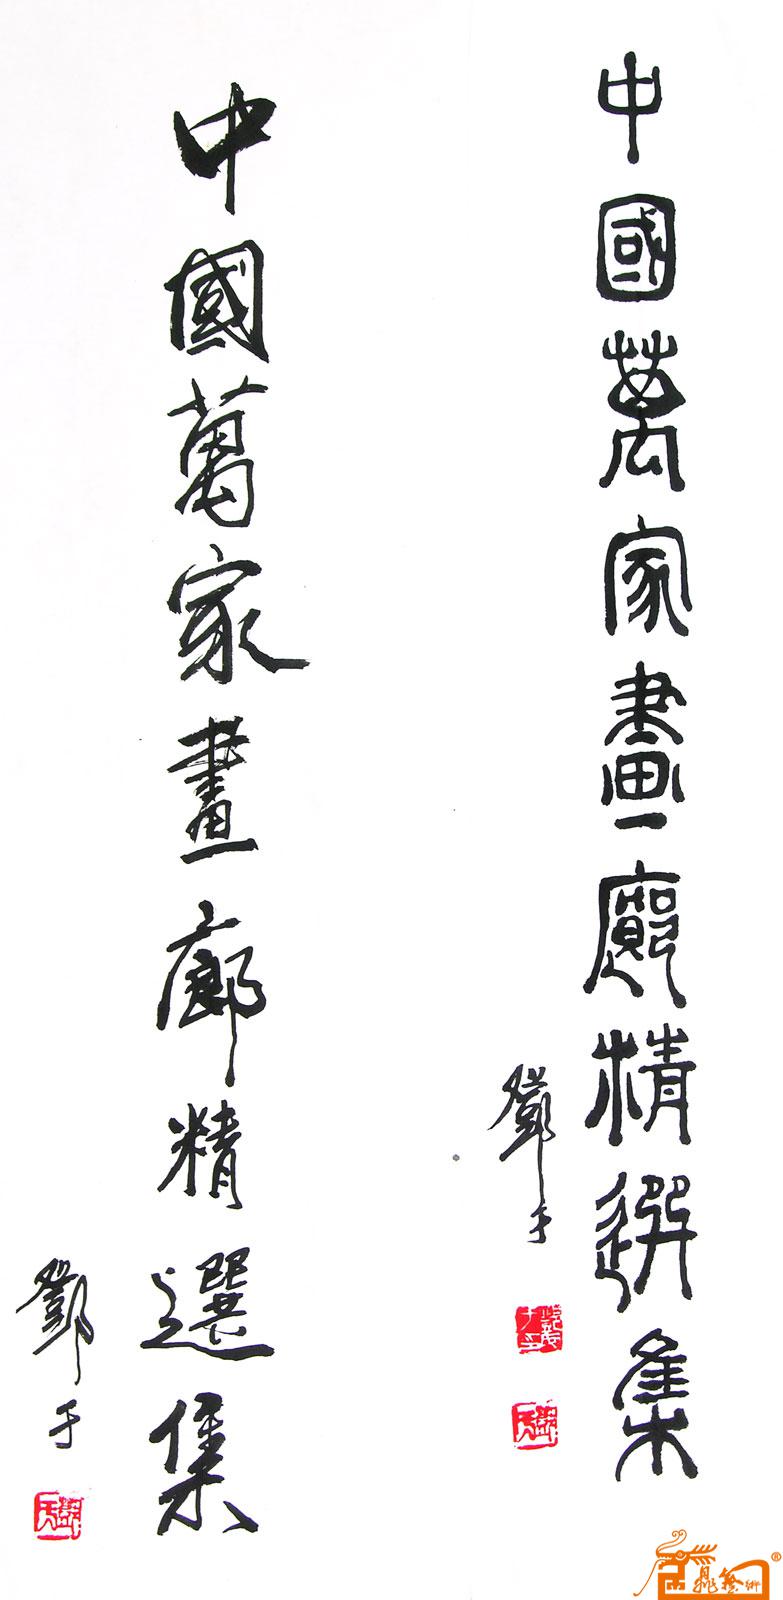 中國萬家畫廊精選集
鄧于
中國萬家畫廊精選集
鄧于